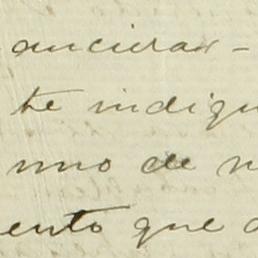 ancieras-
te indigu
nno de n
ento que